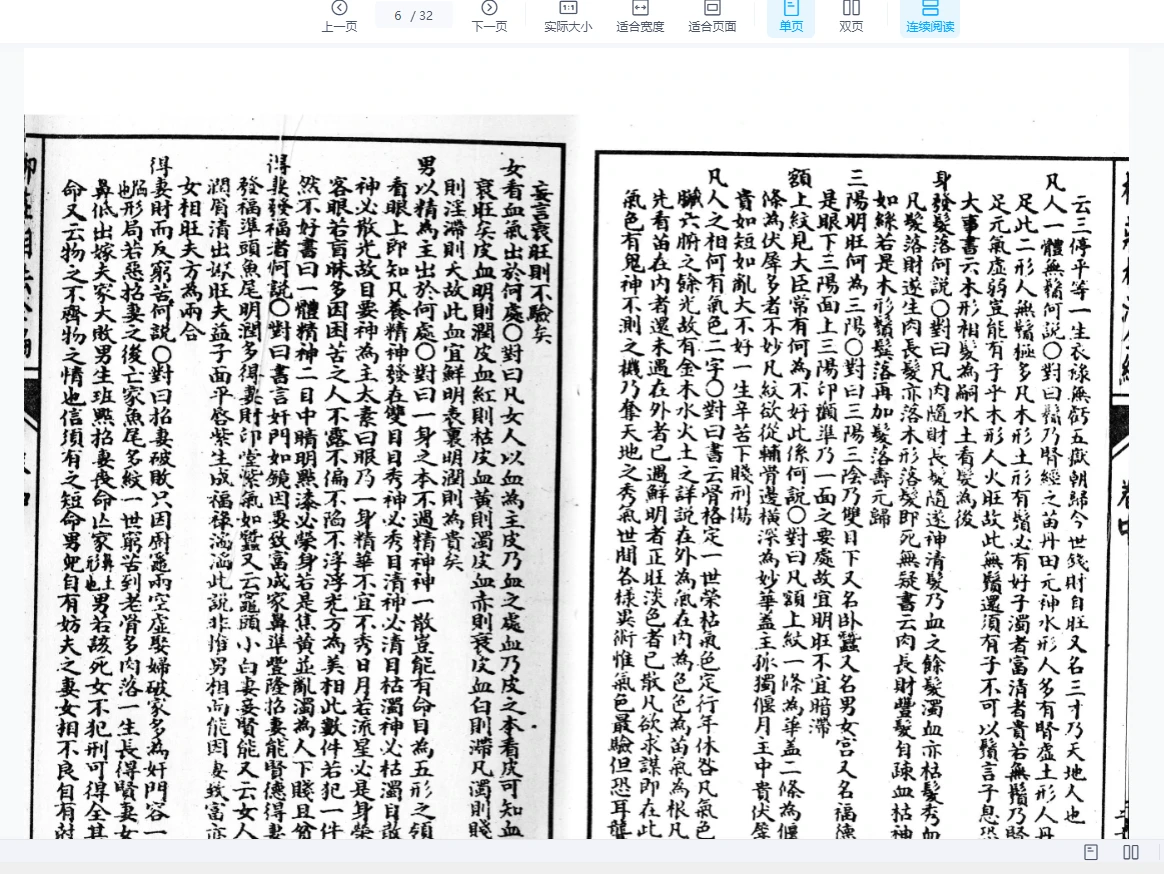 上一页
6 / 32
下一页
1:1
实际大小
适合宽度
适合页面
单页
双页
连续阅读
云三停平等一生衣祿無虧五嶽朝歸今世錢財自旺又名三才乃天地人也
凡人一體無鬚何說〇對曰鬚乃腎經之苗丹田元神水形人多有腎虛土形人丹
足此二形人無鬚極多凡木形土形有鬚必有好子濁者富清者貴若無鬚乃腎
足元氣虛弱豈能有子乎木形人火旺故此無鬚還須有子不可以鬚言子息恐
大事書云木形相髮為嗣水土看髮為後
身發髮落何說〇對曰凡肉隨財長髮隨神清髮乃血之餘髮濁血亦枯髮秀血
凡髮落財遂生肉長髮亦落木形落髮即死無疑書云肉長財豐髮自疎血枯神
如絲若是木形鬚鬓落再加髮落壽元歸
三陽明旺何為三陽〇對曰三陽三陰乃雙目下又名卧蠶又名男女宮又名福德
是眼下三陽面上三陽印額準乃一面之要處故宜明旺不宜暗滯
額上紋見大臣常有何為不好此係何說〇對曰凡額上紋一條為華蓋二條為偃
條為伏犀多者不妙凡紋欲從輔骨邊橫深為妙華蓋主孤獨偃月主中貴伏犀
貴如短如亂大不好一生辛苦下賤刑傷
凡人之相何有氣色二字〇對曰書云骨格定一世榮枯氣色定行年休咎凡氣色
臟六腑之餘光故有金木水火土之詳說在外為氣在内為色色為苗氣為根凡
先看苗在内者還未遇在外者已遇鮮明者正旺淡色者已散凡欲求謀即在此
氣色有鬼神不測之機乃奪天地之秀氣世間各樣異術惟氣色最驗但恐耳聾
妄言衰旺則不驗矣
女看血氣出於何處〇對曰凡女人以血為主皮乃血之處血乃皮之本看皮可知血
衰旺矣皮血明則潤皮血紅則枯皮血黃則濁皮血赤則衰皮血白則滯凡濁則賤
則淫滯則夭故此血宜鮮明表裏明潤則為貴矣
男以精為主出於何處〇對曰一身之本不過精神神一散豈能有命目為五形之領
看眼上即知凡養精神發在雙目目秀神必秀目清神必清目枯濁神必枯濁目散
神必散光故目要神為主太素曰眼乃一身精華不宜不秀日月若流星必是身榮
客眼若盲昧多因困苦之人不露不偏不陷不浮浮光方為美相此數件若犯一件
然不好書曰一體精神二目中睛明點漆必榮身若是焦黃並亂濁為人下賤且貧
得妻發福者何說〇對曰書言奸門如鏡因妻致富成家鼻準豐隆招妻能賢德得妻
發福準頭魚尾明潤多得妻財印堂紫氣如蠶又云竈頭小白妻妾賢能又云女人
潤唇清出嫁旺夫益子面平唇紫生成福祿滔滔此說非惟男相而能因妻致富亦
女相旺夫方為兩合
得妻財而反窮苦何說〇對曰招妻破敗只因廚竈兩空虛娶婦破家多為奸門容一
陷也形局若惡招妻之後亡家魚尾多紋一世窮苦到老骨多肉落一生長得賢妻女
鼻低出嫁夫家大敗男生班點招妻喪命亡家鼻土形也男若該死女不犯刑可得全其
命又云物之不齊物之情也信須有之短命男兒自有妨夫之妻女相不良自有尅